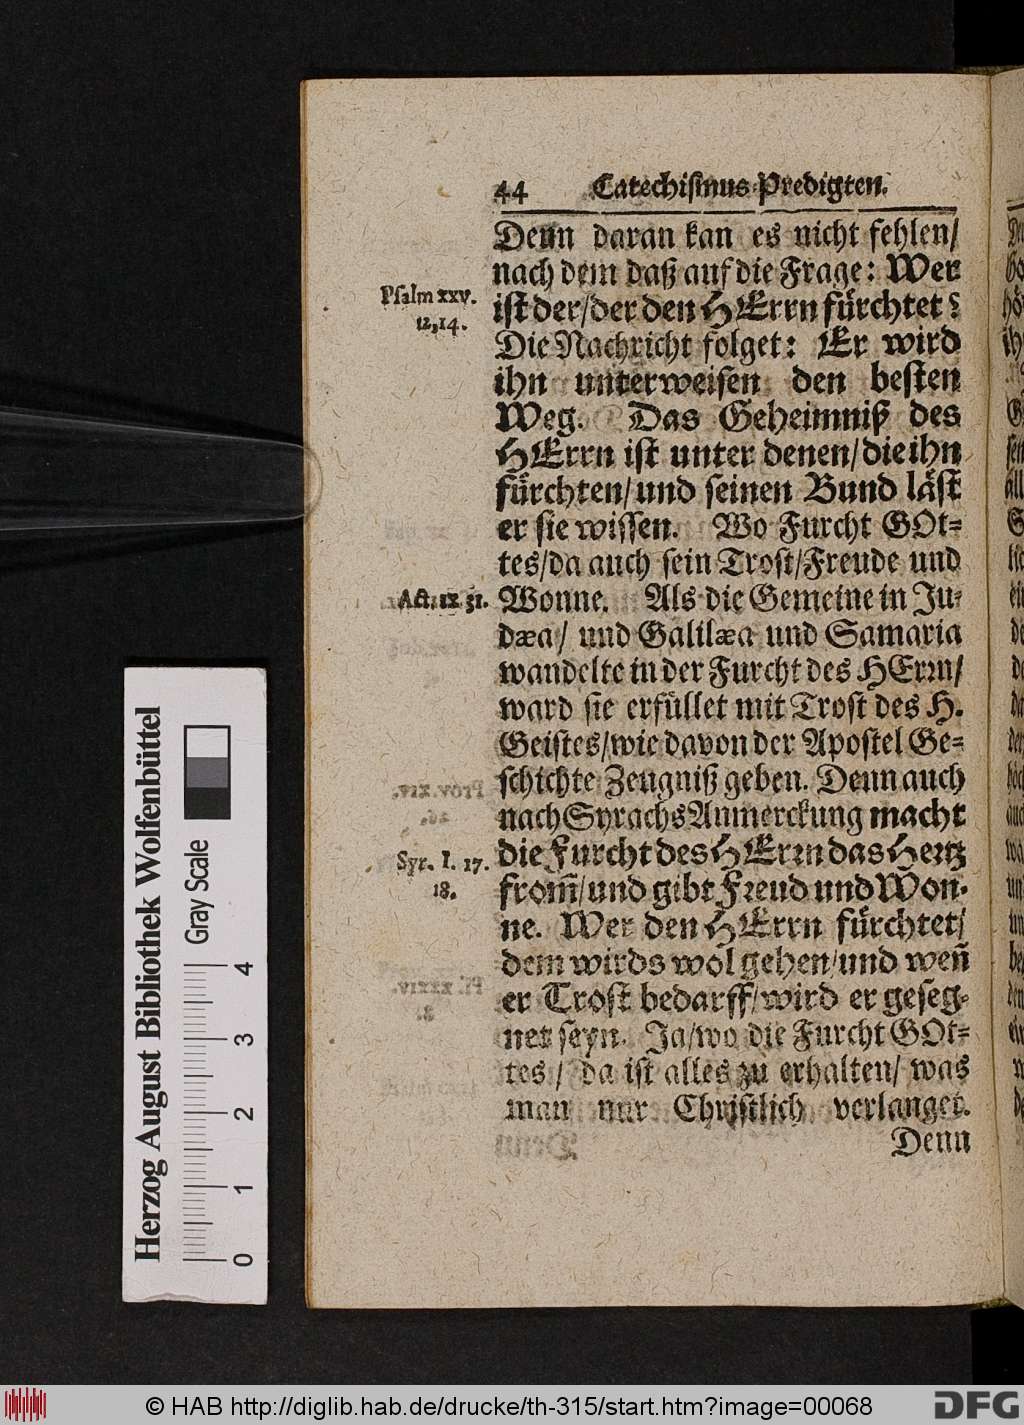 44 Catechismus-Predigten.
Denn daran kan es nicht fehlen/
nach dem daß auf die Frage: Wer
Psalm xxv.
12,14.
ist der/der den HErrn fürchtet?
Die Nachricht folget: Er wird
ihn unterweisen den besten
Weg. Das Geheimniß des
HErrn ist unter denen/die ihn
fürchten/und seinen Bund läst
er sie wissen. Wo Furcht GOt-
tes/da auch sein Trost/Freude und
Act. IX 31.
Wonne. Als die Gemeine in Ju-
dæa/ und Galilæa und Samaria
wandelte in der Furcht des HErrn/
ward sie erfüllet mit Trost des H.
Geistes/wie davon der Apostel Ge-
schichte Zeugniß geben. Denn auch
nach Syrachs Anmerckung macht
Syr. I. 17.
18.
die Furcht des HErrn das Hertz
from̃/und gibt Freud und Won-
ne. Wer den HErrn fürchtet/
dem wirds wol gehen/und weñ
er Trost bedarff/wird er geseg-
net seyn. Ja/wo die Furcht GOt-
tes/ da ist alles zu erhalten/ was
man nur Christlich verlanget.
Denn
Herzog August Bibliothek Wolfenbüttel
Gray Scale
0 1 2 3 4
© HAB http://diglib.hab.de/drucke/th-315/start.htm?image=00068
DFG